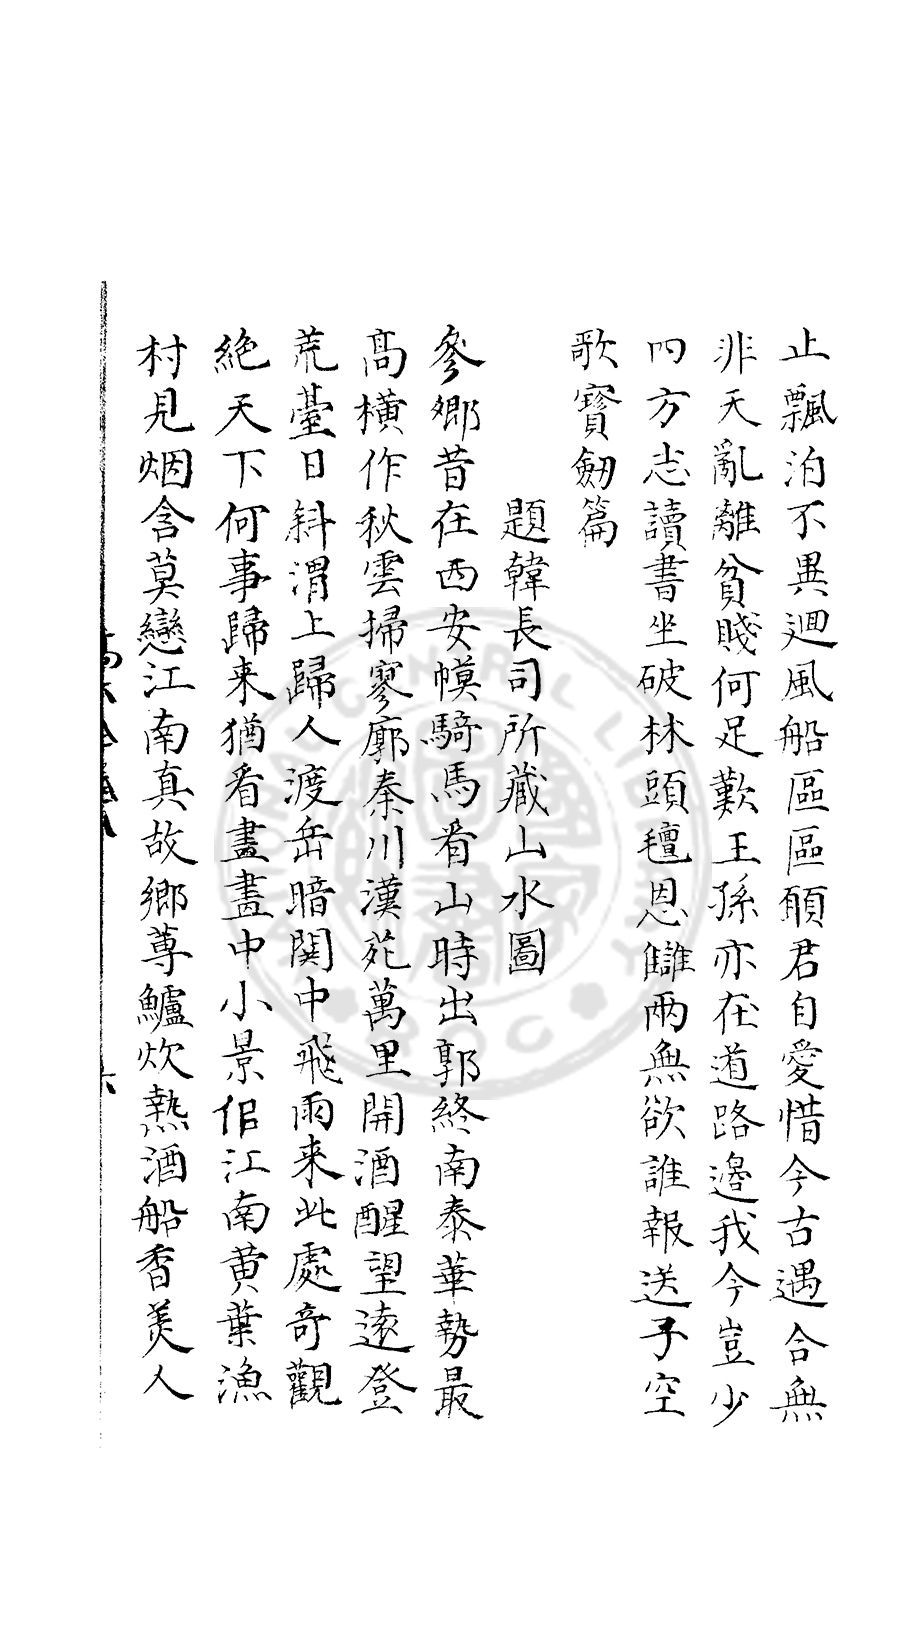 止飄泊不異廻風船區區願君自愛惜今古遇合無
非天亂離貧賤何足歎王孫亦在道路邊我今豈少
四方志讀書坐破牀頭氊恩讎兩無欲誰報送子空
歌寶劒篇
題韓長司所藏山水圖
參鄉昔在西安幙騎馬看山時出郭終南泰華勢最
髙橫作秋雲掃寥廓秦川漢苑萬里開酒醒望遠登
荒臺日斜渭上歸人渡岳暗関中飛雨来此處奇觀
絶天下何事歸来猶看畫畫中小景侣江南黄葉漁
村見烟含莫戀江南真故鄉蓴鱸炊熱酒船香美人
六
GENERAL LIBRARY
ROC